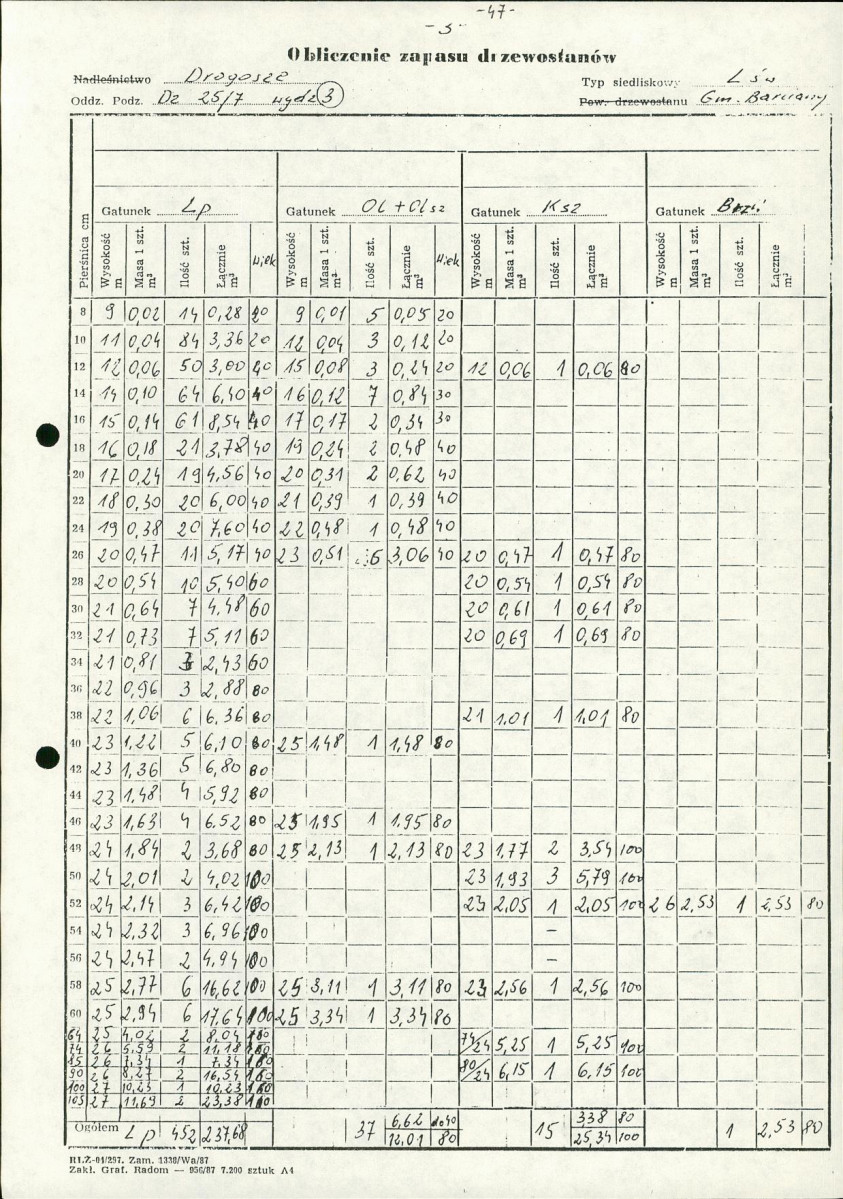 -47-
-5-
Obliczenie zapasu drzewostanów
Nadleśnictwo Drogosze Typ siedliskowy Lśw
Oddz. Podz. Dz 25/7 wydz 3 Pow. drzewostanu Gm. Barciany
Gatunek Lp Gatunek Ol + Olsz Gatunek Ksz Gatunek
Pierśnica cm Wysokość m Masa 1 szt. m³ Ilość szt. Łącznie m³ Wiek Wysokość m Masa 1 szt. m³ Ilość szt. Łącznie m³ Wiek Wysokość m Masa 1 szt. m³ Ilość szt. Łącznie m³ Wysokość m Masa 1 szt. m³ Ilość szt. Łącznie m³
8 9 0,02 14 0,28 20 9 0,01 5 0,05 20
10 11 0,04 84 3,36 20 12 0,04 3 0,12 20
12 12 0,06 50 3,00 40 15 0,08 3 0,24 20 12 0,06 1 0,06 80
14 14 0,10 64 6,40 40 16 0,12 7 0,84 30
16 15 0,14 61 8,54 40 17 0,17 2 0,34 30
18 16 0,18 21 3,78 40 19 0,24 2 0,48 40
20 17 0,24 19 4,56 40 20 0,31 2 0,62 40
22 18 0,30 20 6,00 40 21 0,39 1 0,39 40
24 19 0,38 20 7,60 40 22 0,48 1 0,48 40
26 20 0,47 11 5,17 40 23 0,51 6 3,06 40 20 0,47 1 0,47 80
28 20 0,54 10 5,40 60 20 0,54 1 0,54 80
30 21 0,64 7 4,48 60 20 0,61 1 0,61 80
32 21 0,73 7 5,11 60 20 0,69 1 0,69 80
34 21 0,81 3 2,43 60
36 22 0,96 3 2,88 80
38 22 1,06 6 6,36 80 21 1,01 1 1,01 80
40 23 1,22 5 6,10 80 25 1,48 1 1,48 80
42 23 1,36 5 6,80 80
44 23 1,48 4 5,92 80
46 23 1,63 4 6,52 80 25 1,95 1 1,95 80
48 24 1,84 2 3,68 80 25 2,13 1 2,13 80 23 1,77 2 3,54 100
50 24 2,01 2 4,02 100 23 1,93 3 5,79 100
52 24 2,14 3 6,42 100 23 2,05 1 2,05 100 26 2,53 1 2,53 80
54 24 2,32 3 6,96 100 –
56 24 2,47 2 4,94 100 –
58 25 2,77 6 16,62 100 25 3,11 1 3,11 80 23 2,56 1 2,56 100
60 25 2,94 6 17,64 100 25 3,34 1 3,34 80
64 25 4,02 2 8,04
74 26 5,59 2 11,18 74/24 5,25 1 5,25 100
85 26 7,34 1 7,34
90 26 8,27 2 16,54 80/24 6,15 1 6,15 100
100 27 10,23 1 10,23
105 27 11,69 2 23,38
Ogółem Lp 452 237,68 37 6,62 do 40 15 3,38 80 1 2,53 80
12,01 80 25,34 100
RLŻ-01/297. Zam. 1338/Wa/87
Zakł. Graf. Radom — 956/87 7.200 sztuk A4